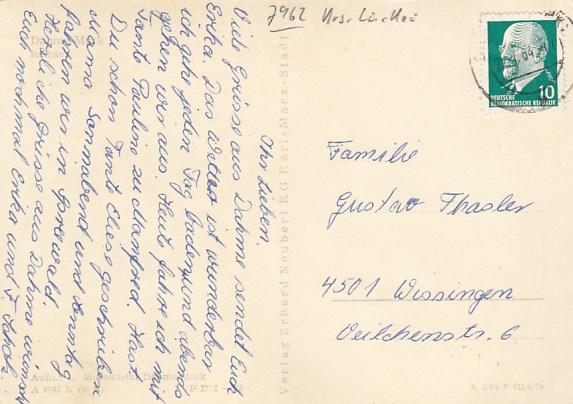 7962
Ihr Lieben.
Viele Grüsse aus Dahme sendet Euch
Erika. Das Wetter ist wunderbar
ich gehe jeden Tag baden und abends
gehen wir aus. Heute fahre ich mit
Tante Pauline zu Manfred. Hast
Du schon Tante Elise geschrieben
Mama Sonnabend und Sonntag
waren wir in
Herzliche Grüsse aus Dahme wünscht
Euch nochmal Erika und F. Jakob.
Verlag Erhard Neubert KG Karl-Marx-Stadt
10
DEUTSCHE
DEMOKRATISCHE REPUBLIK
Familie
Gustav Thasler
4501 Wissingen
Veilchenstr. 6